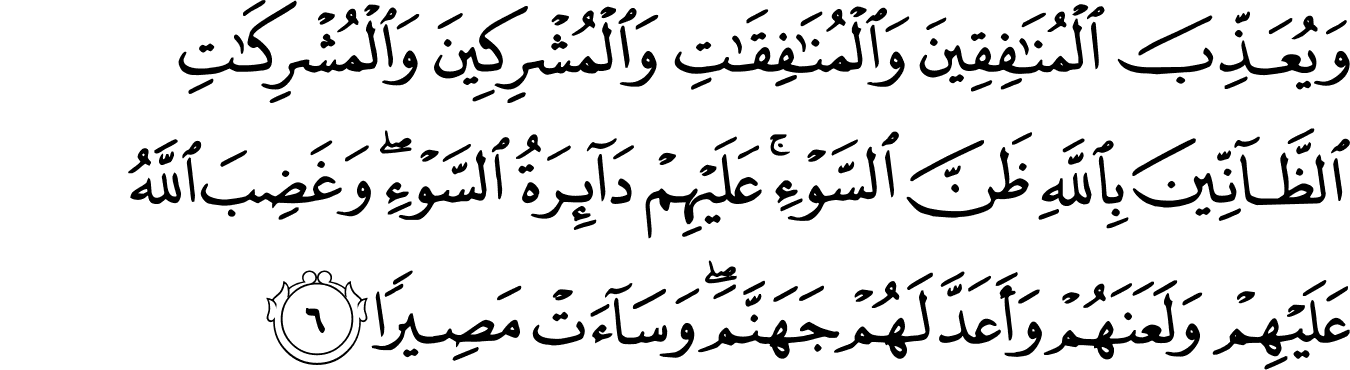 وَيُعَذِّبَ ٱلْمُنَـٰفِقِينَ وَٱلْمُنَـٰفِقَـٰتِ وَٱلْمُشْرِكِينَ وَٱلْمُشْرِكَـٰتِ
ٱلظَّآنِّينَ بِٱللَّهِ ظَنَّ ٱلسَّوْءِ ۚ عَلَيْهِمْ دَآئِرَةُ ٱلسَّوْءِ ۖ وَغَضِبَ ٱللَّهُ
عَلَيْهِمْ وَلَعَنَهُمْ وَأَعَدَّ لَهُمْ جَهَنَّمَ ۖ وَسَآءَتْ مَصِيرًا ٦